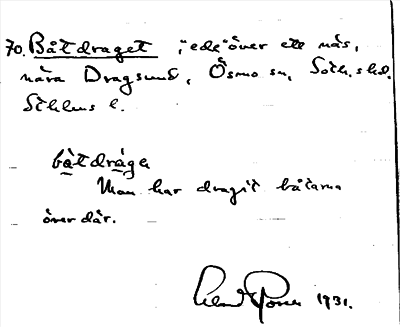 70. Båtdraget, "ede" över ett näs,
nära Dragsund, Ösmo sn, Soth. shd.
Sthlms l.
båtdràga
Man har dragit båtarna
över där.
1931.